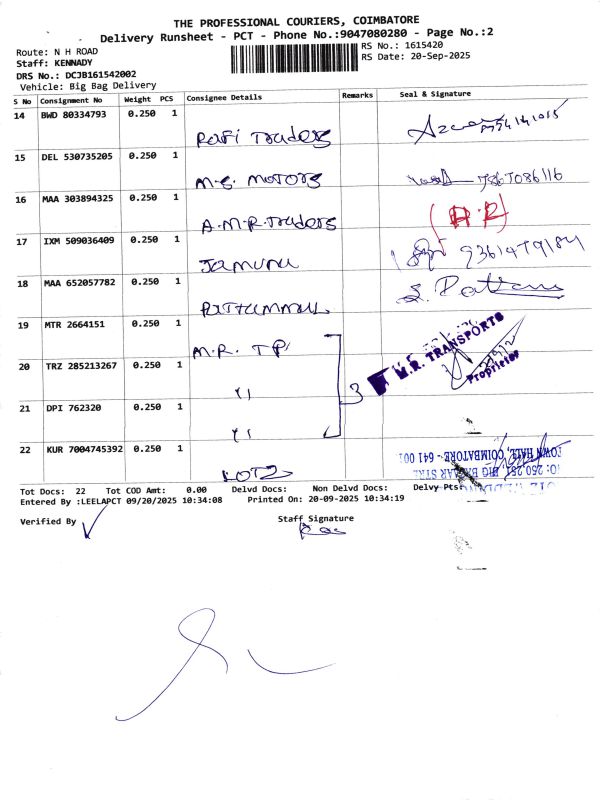 THE PROFESSIONAL COURIERS, COIMBATORE
Delivery Runsheet - PCT - Phone No.:9047080280 - Page No.:2
Route: N H ROAD
Staff: KENNADY
DRS No.: DCJB161542002
Vehicle: Big Bag Delivery
RS No.: 1615420
RS Date: 20-Sep-2025
S No Consignment No Weight PCS Consignee Details Remarks Seal & Signature
14 BWD 80334793 0.250 1 Rafi Traders
15 DEL 530735205 0.250 1 M.S. MOTORS 7867086116
16 MAA 303894325 0.250 1 A.M.R. Traders (A.R)
17 IXM 509036409 0.250 1 Jamuna
18 MAA 652057782 0.250 1
19 MTR 2664151 0.250 1 M.R. TP
20 TRZ 285213267 0.250 1 " 3 M.R. TRANSPORTS
Proprietor
21 DPI 762320 0.250 1 "
22 KUR 7004745392 0.250 1 TOWN HALL, COIMBATORE - 641 001
Tot Docs: 22 Tot COD Amt: 0.00 Delvd Docs: Non Delvd Docs: Delvy Pts:
Entered By :LEELAPCT 09/20/2025 10:34:08 Printed On: 20-09-2025 10:34:19
Verified By
Staff Signature